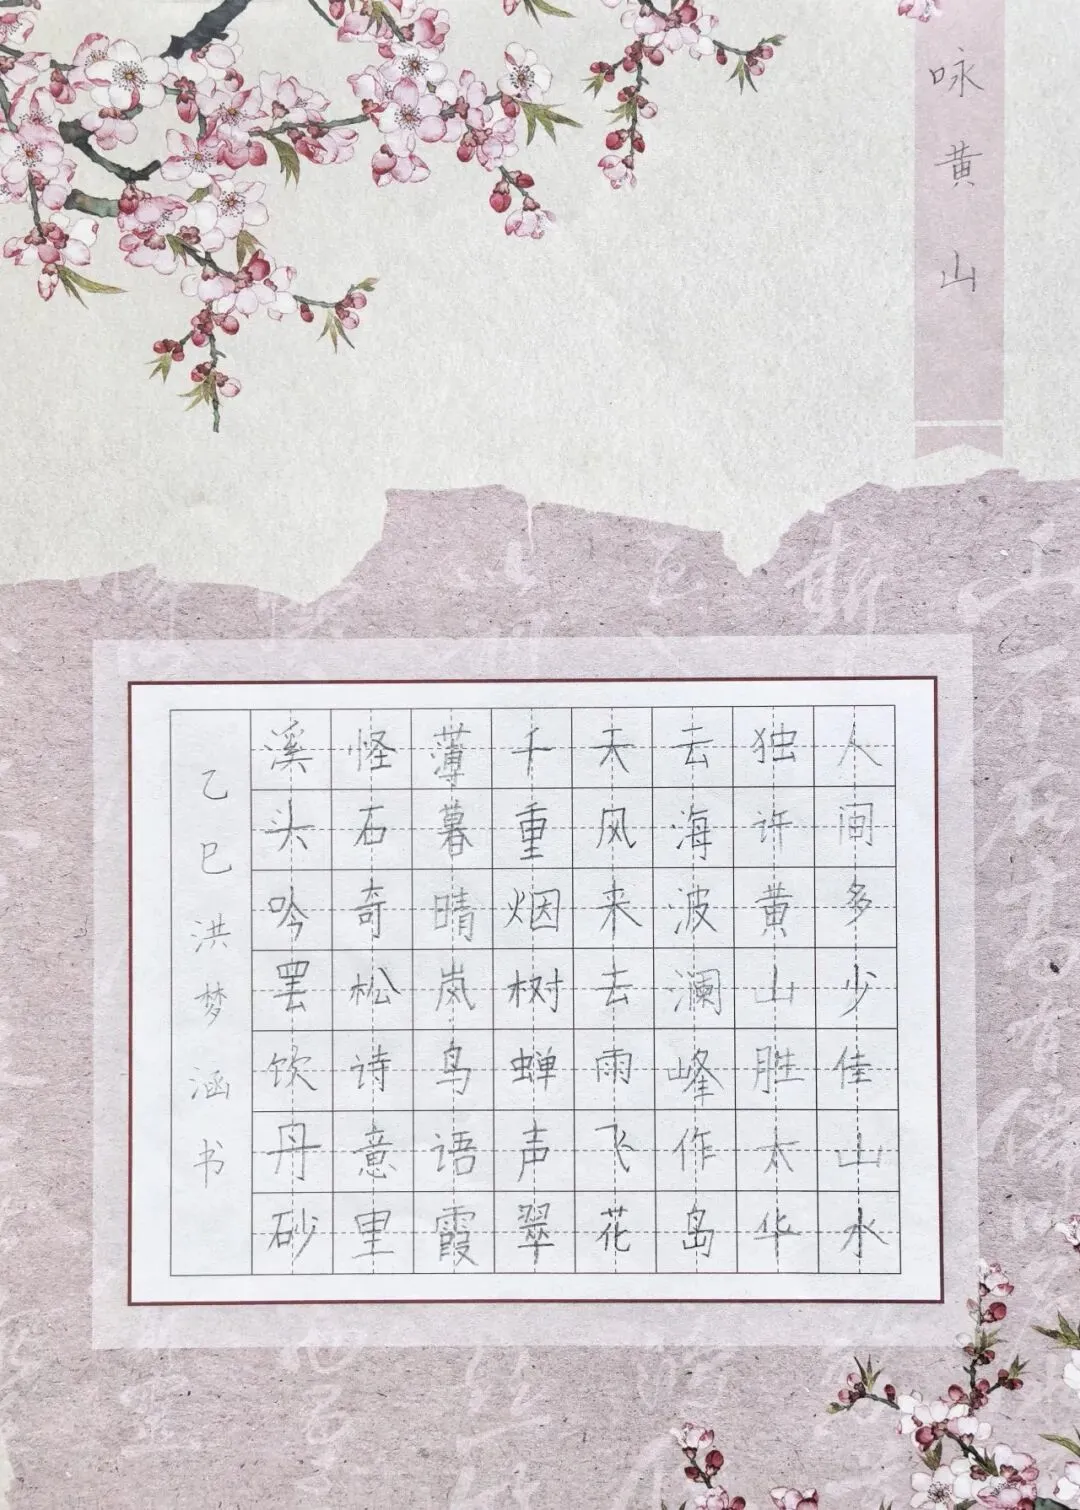 咏黄山
人间多少佳山水
独许黄山胜太华
云海波澜峰作岛
天风来去雨飞花
千重烟树蝉声翠
薄暮晴岚鸟语霞
怪石奇松诗意里
溪头吟罢饮丹砂
乙巳洪梦涵书